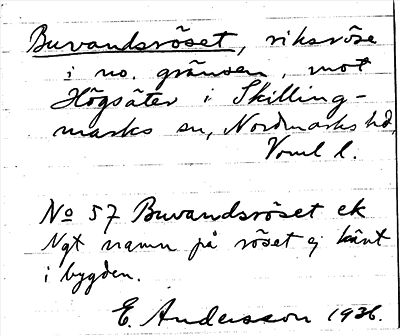 Buvandsröset, riksröse
i no. gränsen, mot
Högsäter i Skilling-
marks sn, Nordmarks hd,
Vrml l.
No 57 Buvandsröset ek
Ngt namn på röset ej känt
i bygden.
E. Andersson 1926.